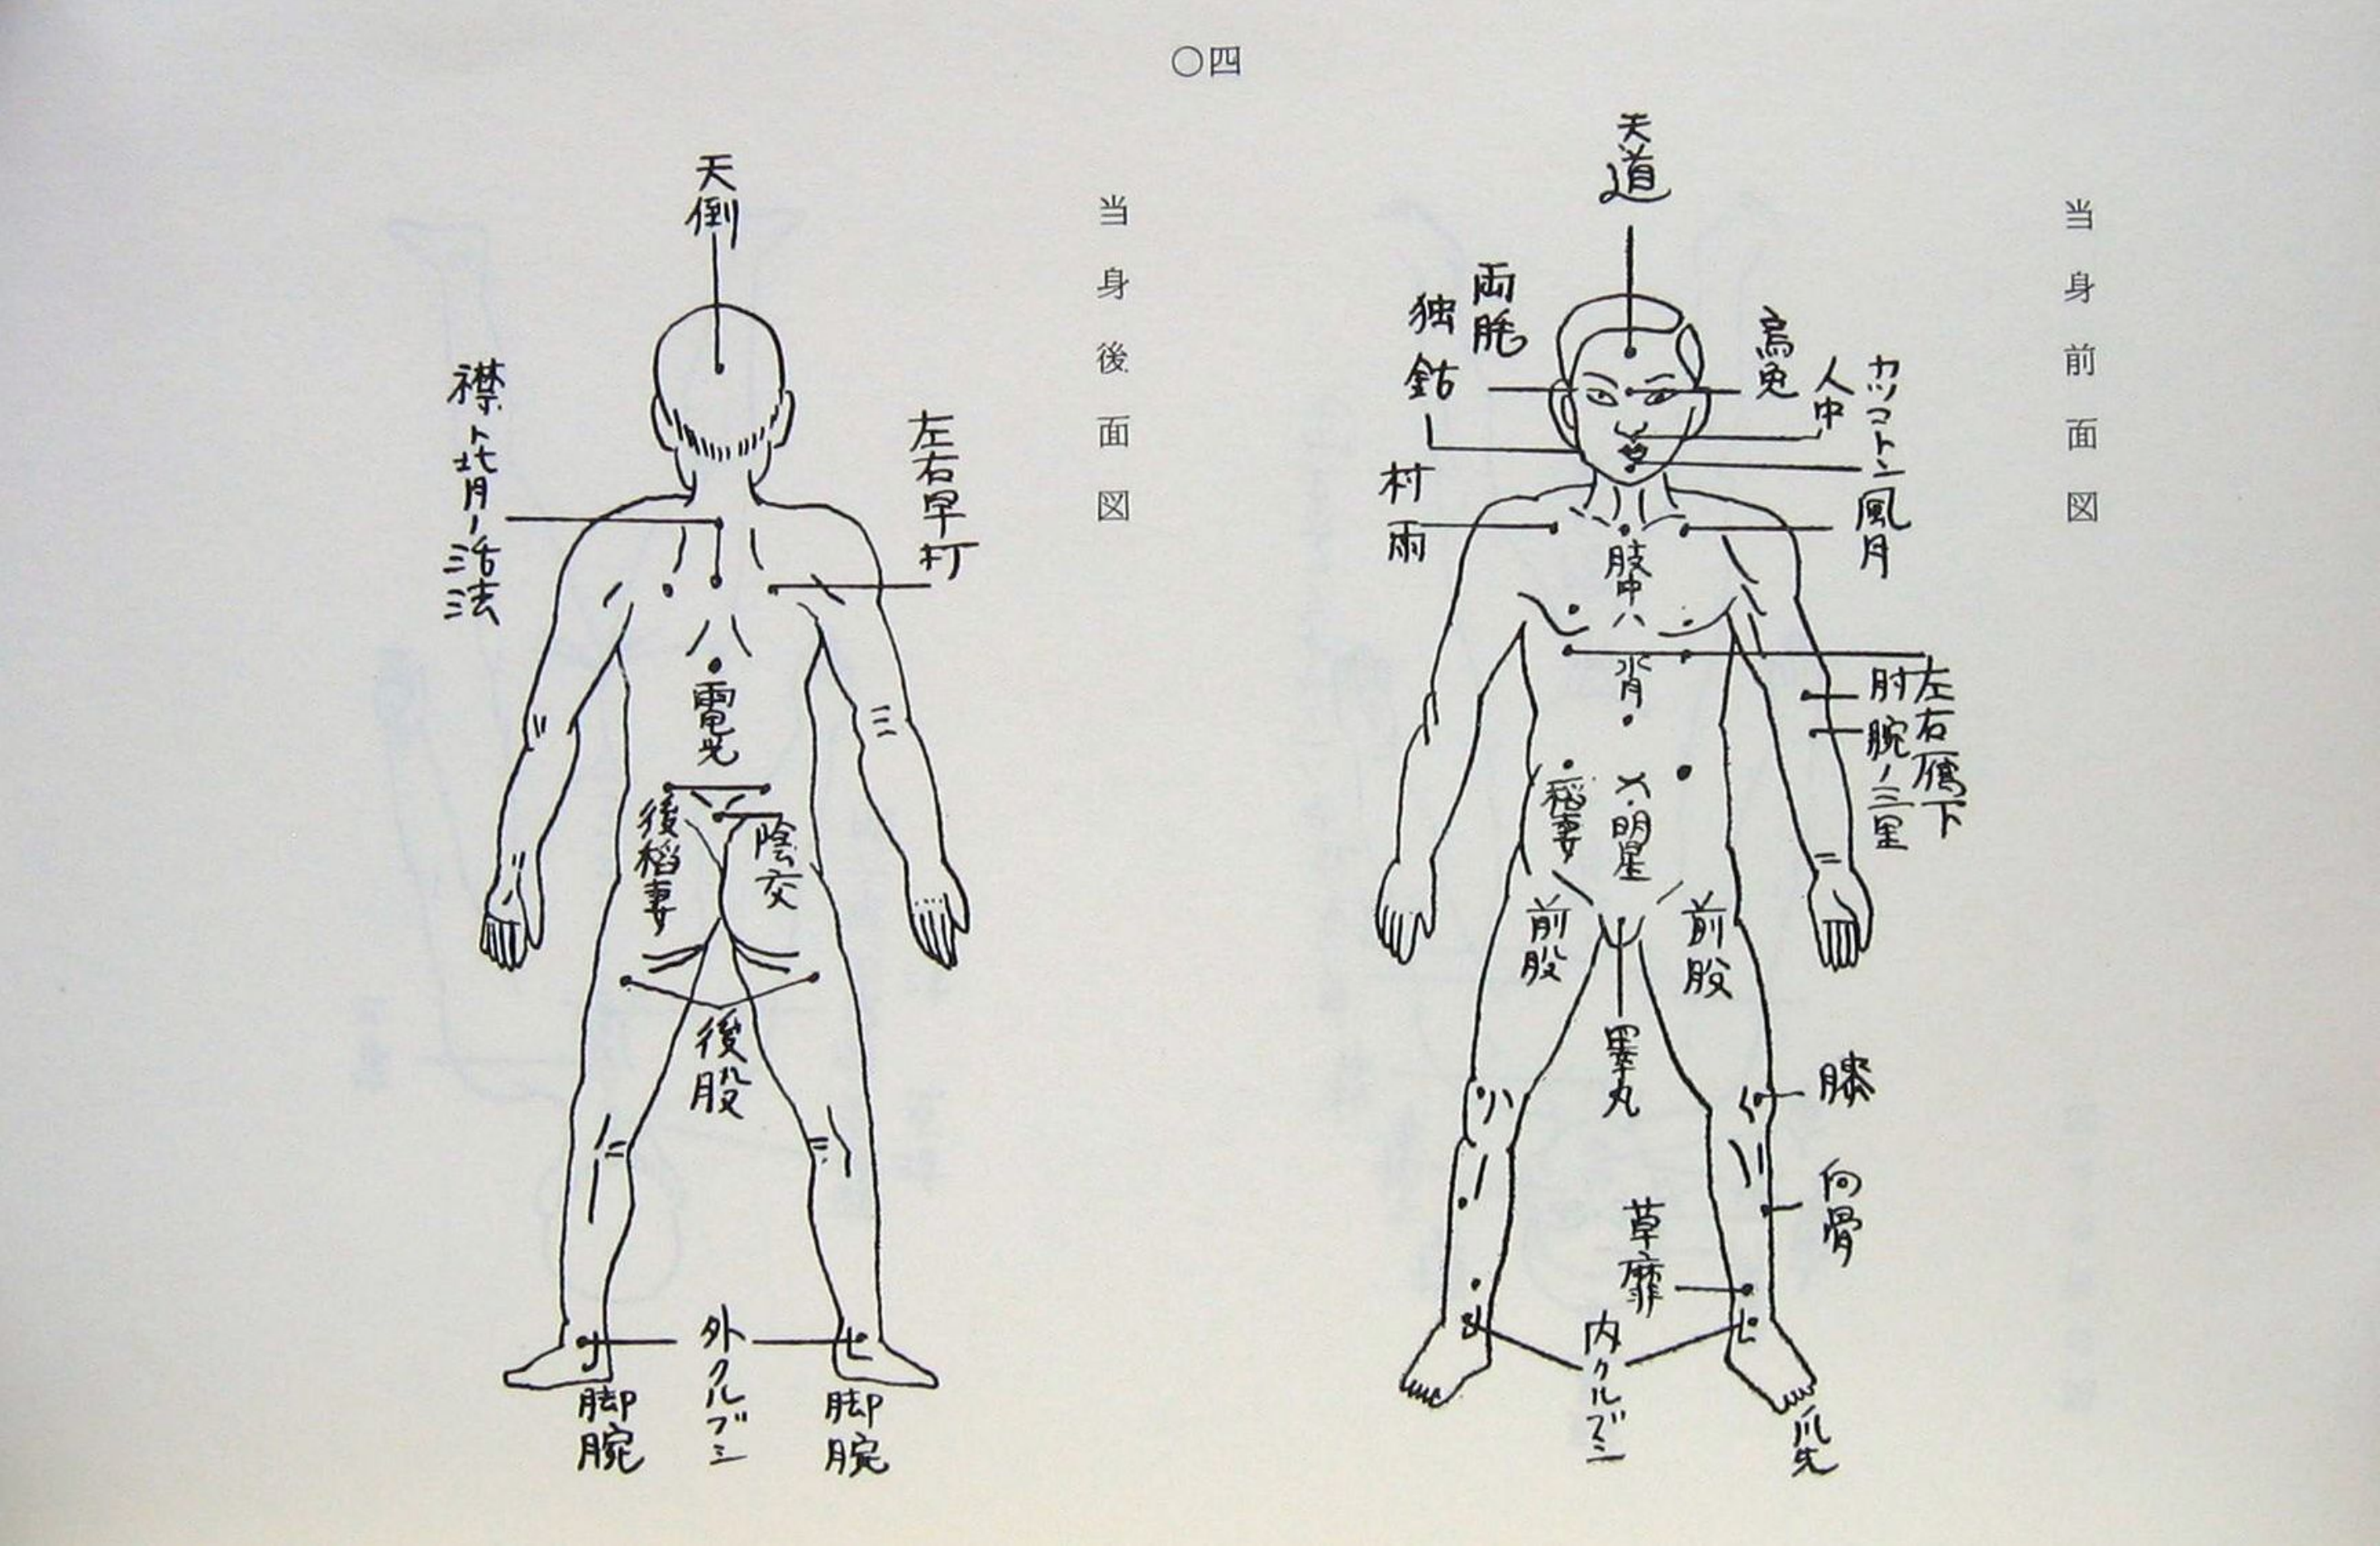 〇四
当身前面図
天道
両眊
独鈷
烏兎
人中
カツコトン
村雨
風月
肢中
水月
左右雁下
肘
腕ノ三里
稲妻
明星
前股
前股
睾丸
膝
向骨
草靡
内クルブシ
爪先
当身後面図
天倒
襟ト背ノ活法
左右早打
電光
後稲妻
陰交
後股
外クルブシ
脚腕
脚腕